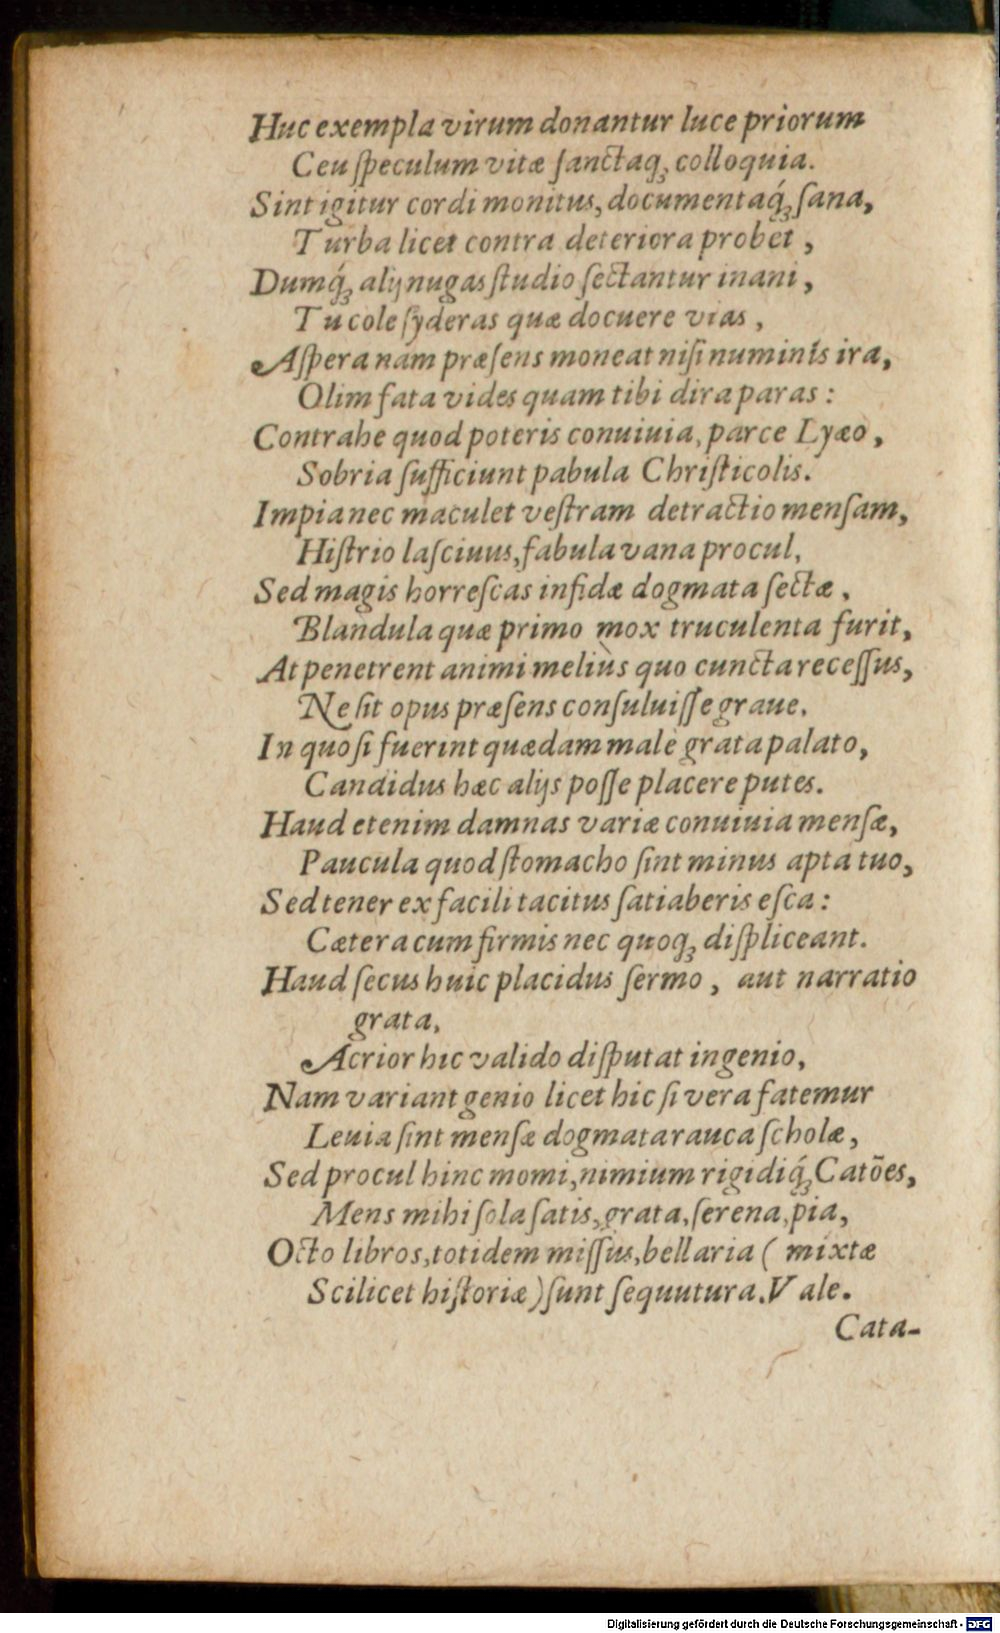 Huc exempla virum donantur luce priorum
Ceu ſpeculum vitæ ſanctaq́ꝫ colloquia.
Sint igitur cordi monitus, documentaq́ꝫ ſana,
Turba licet contra deteriora probet,
Dumq́ꝫ alij nugas ſtudio ſectantur inani,
Tu cole ſyderas quæ docuere vias,
Aſpera nam præſens moneat niſi numinis ira,
Olim fata vides quam tibi dira paras:
Contrahe quod poteris conuiuia, parce Lyæo,
Sobria ſufficiunt pabula Chriſticolis.
Impia nec maculet veſtram detractio menſam,
Hiſtrio laſciuus, fabula vana procul,
Sed magis horreſcas infidæ dogmata ſectæ,
Blandula quæ primo mox truculenta furit,
At penetrent animi meliùs quo cuncta receſſus,
Ne ſit opus præſens conſuluiſſe graue.
In quo ſi fuerint quædam malè grata palato,
Candidus hæc alijs poſſe placere putes.
Haud etenim damnas variæ conuiuia menſæ,
Paucula quod ſtomacho ſint minus apta tuo,
Sed tener ex facili tacitus ſatiaberis eſca:
Cætera cum firmis nec quoqꝫ diſpliceant.
Haud ſecus huic placidus ſermo, aut narratio
grata,
Acrior hic valido diſputat ingenio,
Nam variant genio licet hic ſi vera fatemur
Leuia ſint menſæ dogmata rauca ſcholæ,
Sed procul hinc momi, nimium rigidiq́ꝫ Catões,
Mens mihi ſola ſatis, grata, ſerena, pia,
Octo libros, totidem miſſus, bellaria ( mixtæ
Scilicet hiſtoriæ) ſunt ſequutura. Vale.
Cata-
Digitalisierung gefördert durch die Deutsche Forschungsgemeinschaft - DFG